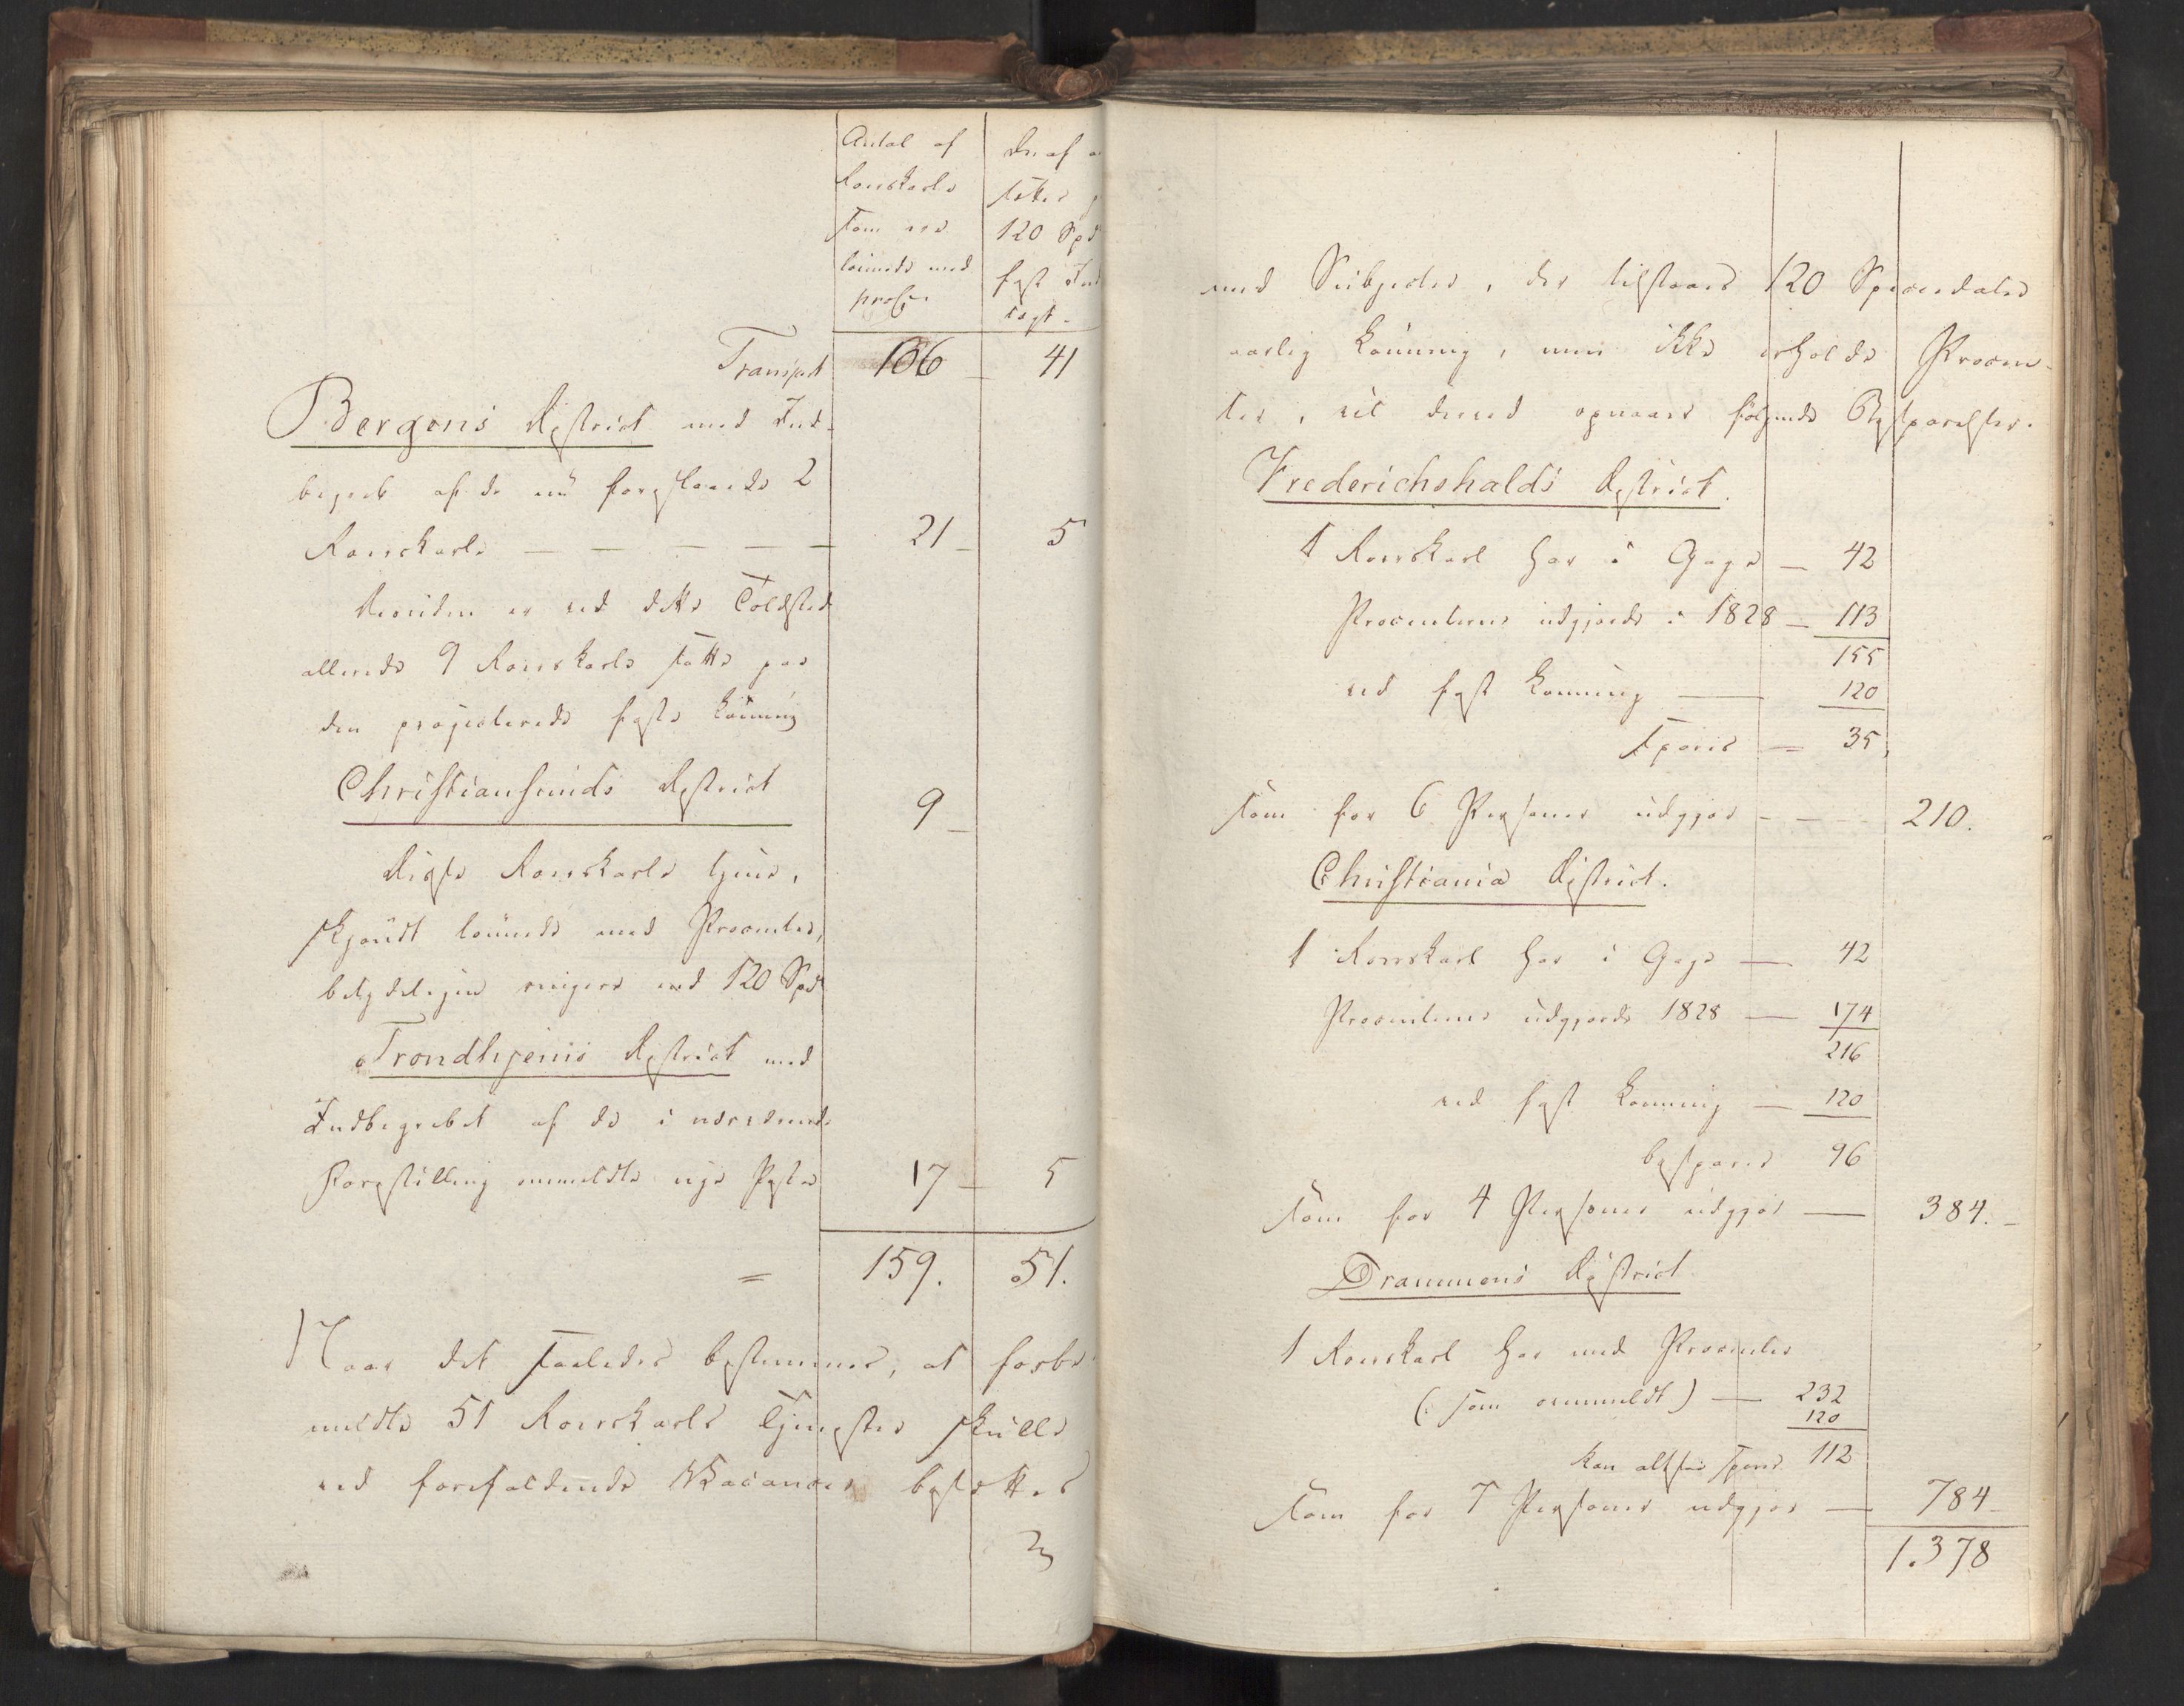 Antal af
Roerskarle
som ere
lönnede med
proCt
Deraf a
sættes p
120 Spd
fast Ind
tægt.
Transport 106 41
Bergens District med Ind-
begreb af de nu foreslaaede 2
Roerskarle — — — — — 21 5
Desuden er ved dette Toldsted
allerede 9 Roerskarle satte paa
den projecterede faste Lönning
Christiansunds District 9
Disse Roerskarle tjene,
skjöndt lönnede med Procenter,
betydeligen ringere end 120 Spd
Trondhjems District med
Indbegrebet af de i nærværende
Forestilling ommeldte nye Poster 17 5
= 159. 51.
Naar det saaledes bestemmes, at forbe-
meldte 51 Roerskarls Tjenester skulle
ved forefaldende Vacancer besættes
med Subjecter, der tilstaaes 120 Speciedaler
aarlig Lönning, men ikke erholde Procen-
ter, vil derved opnaaes fölgende Besparelser.
Frederichshalds District.
1 Roerskarl har i Gage — 42
Procenterne udgjorde i 1828 — 113
155
ved fast Lönning — 120
spares — 35,
som for 6 Personer udgjör - - - 210.
Christiania District.
1 Roerskarl har i Gage — 42
Procenterne udgjorde 1828 — 174
216
ved fast Lönning — 120
bespares 96
som for 4 Personer udgjör — 384.-
Drammens District
1 Roerskarl har med Procenter
(: som ommeldt) — 232
120
kan altsaa spares 112
som for 7 Personer udgjör — 784-
1.378